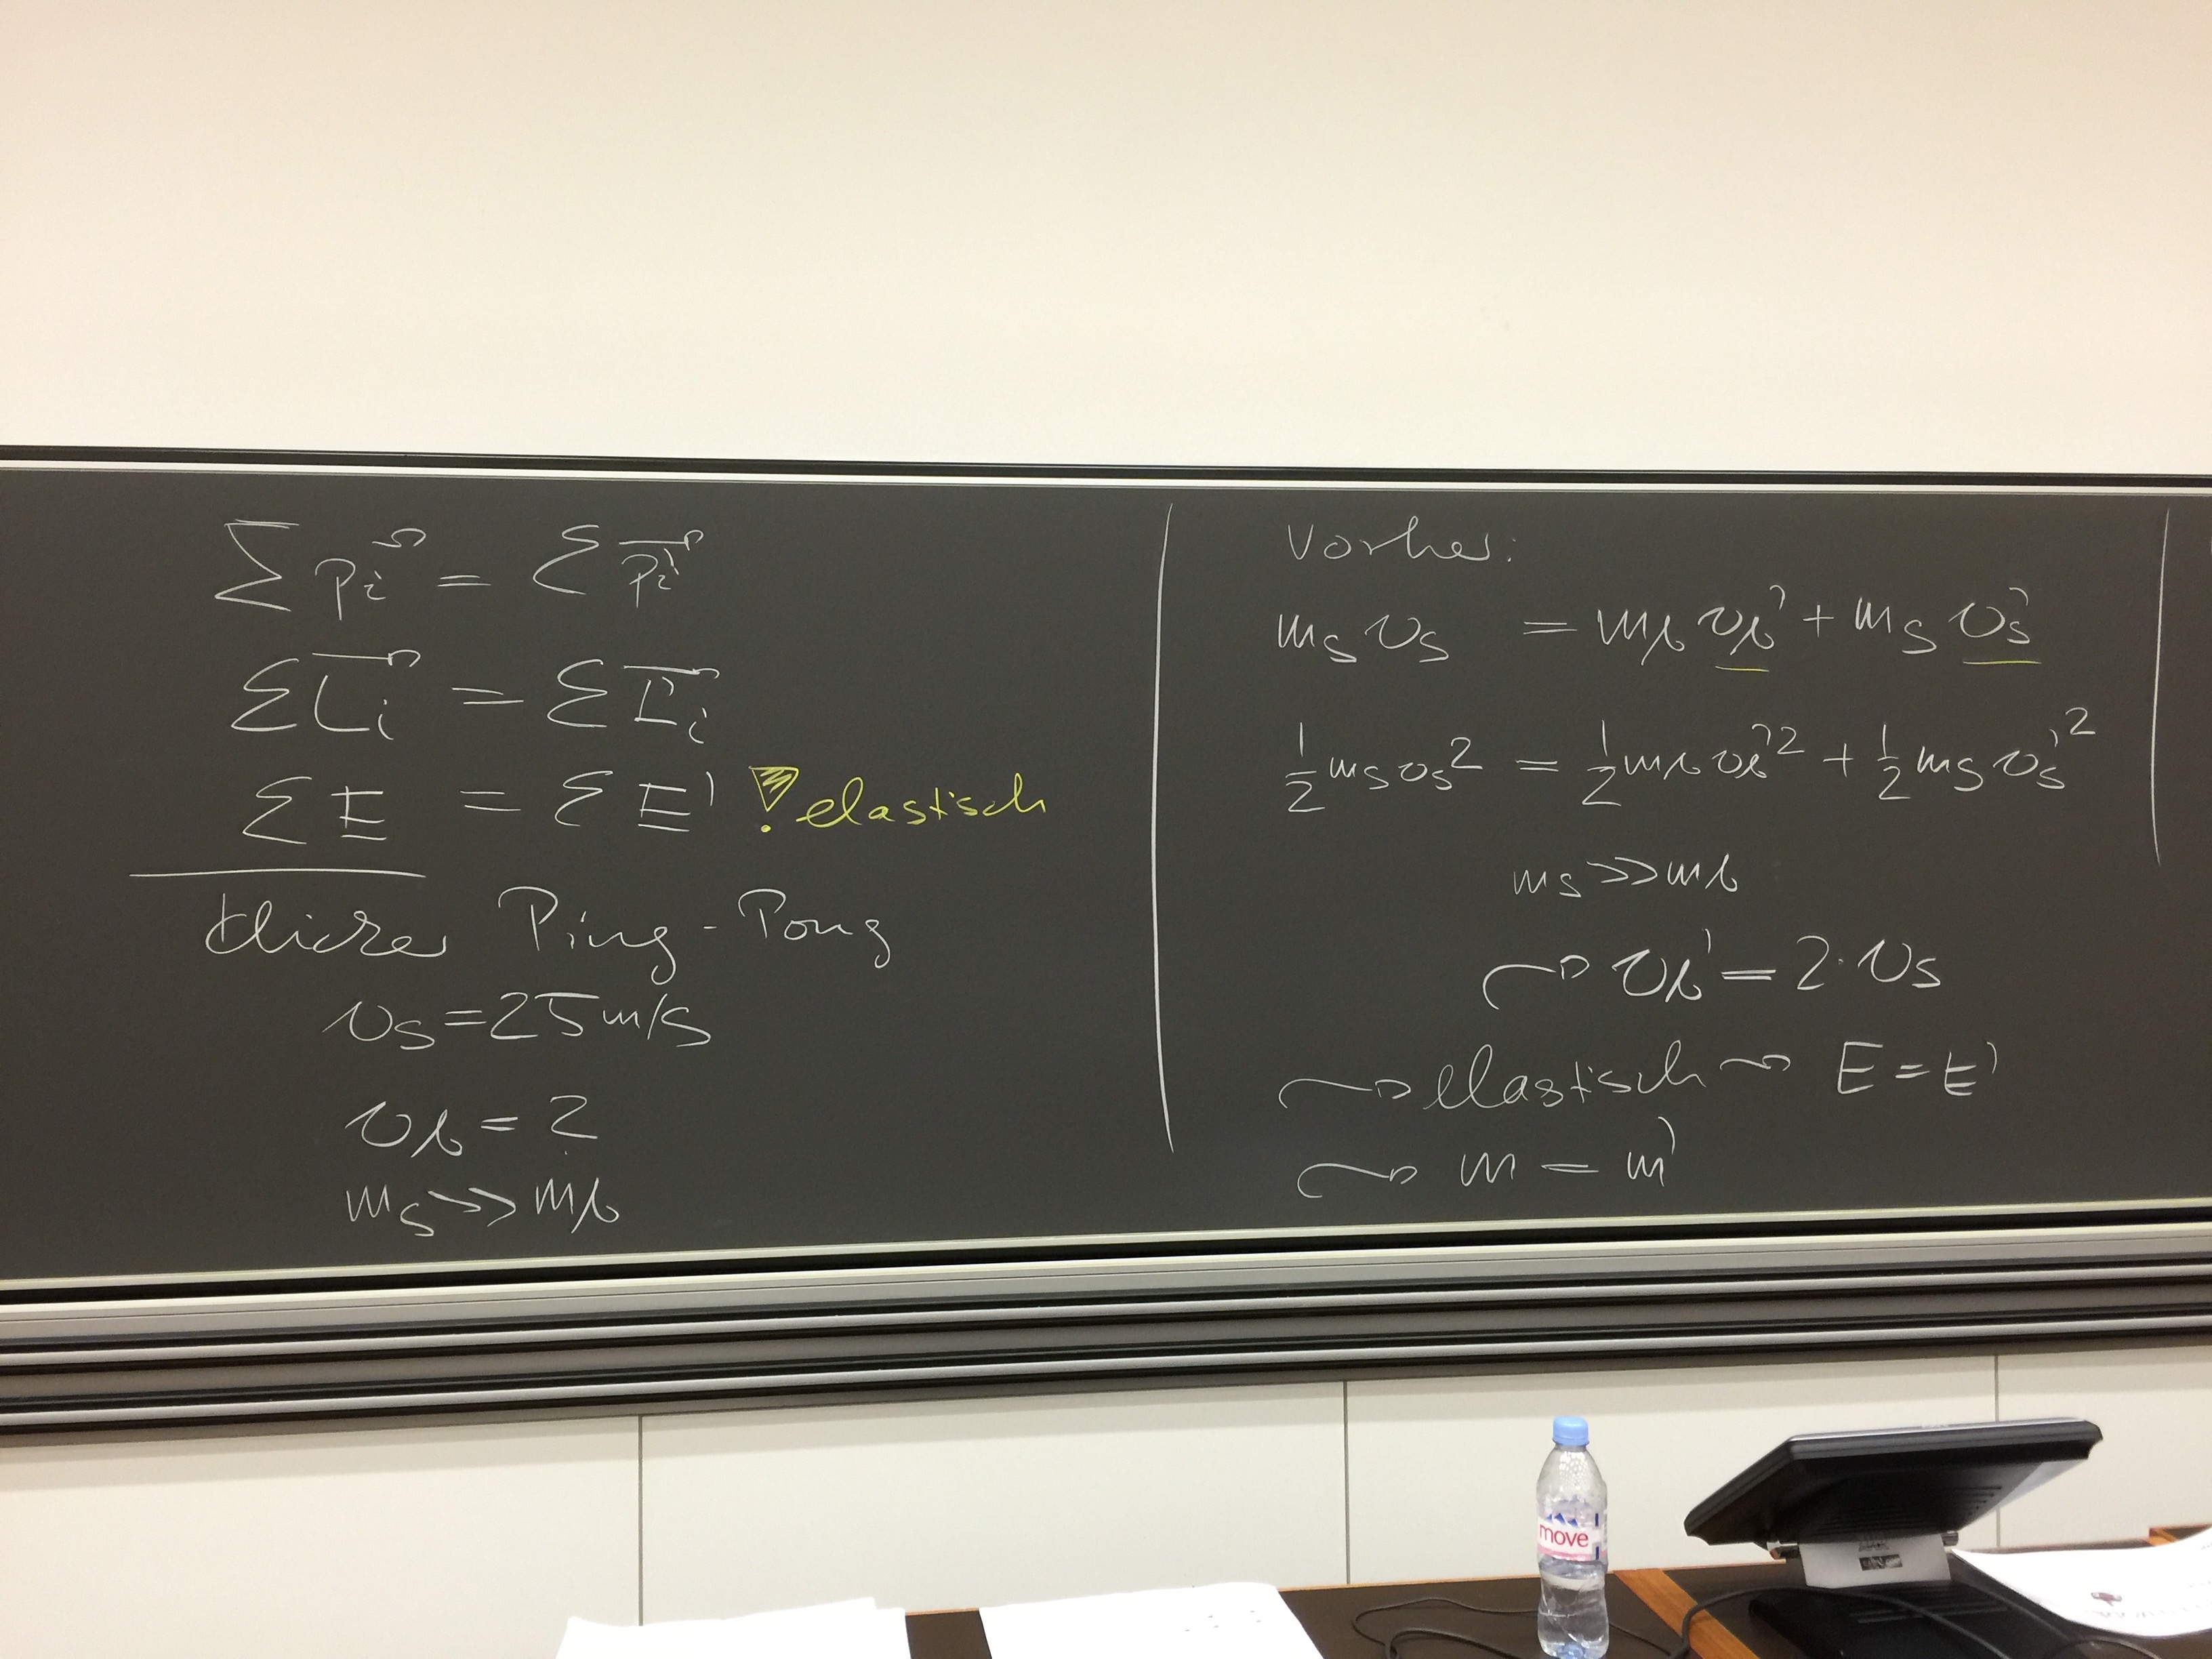 ∑ p⃗ᵢ = ∑ p⃗ᵢ'
∑ L⃗ᵢ = ∑ L⃗'ᵢ
∑ E = ∑ E' ! elastisch
Klicker Ping-Pong
v_s = 25 m/s
v_b = ?
m_s >> m_b
Vorher:
m_s v_s = m_b v_b' + m_s v_s'
½ m_s v_s² = ½ m_b v_b'² + ½ m_s v_s'²
m_s >> m_b
→ v_b' = 2 · v_s
→ elastisch → E = E'
→ m = m'
move